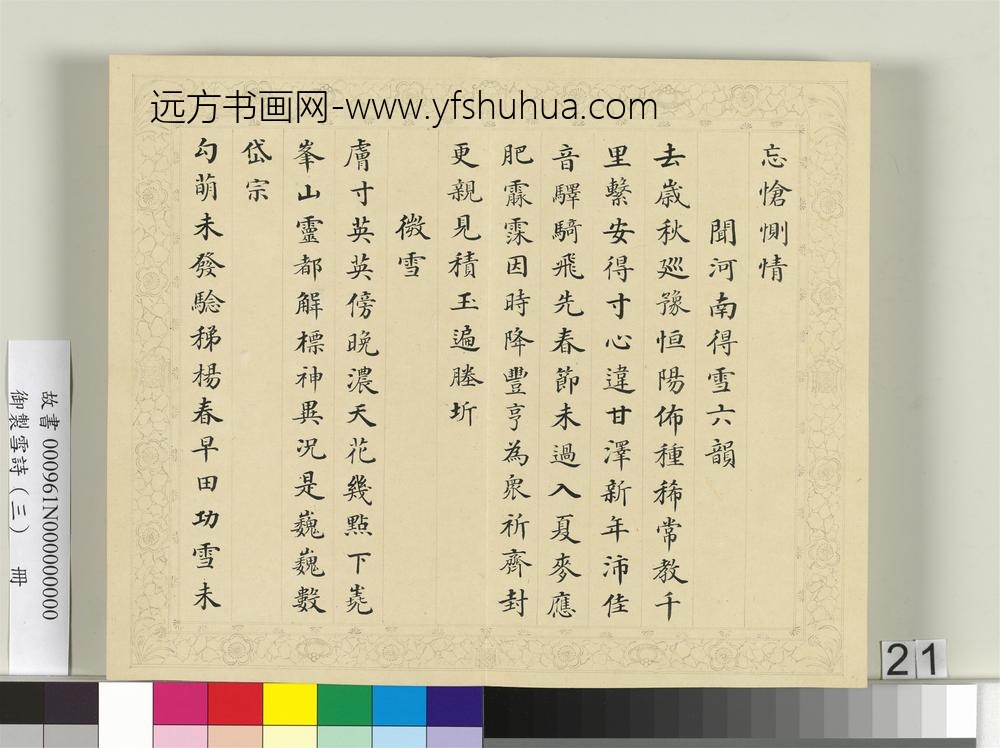 远方书画网-www.yfshuhua.com
忘愴惻情
聞河南得雪六韻
去歲秋廵豫恒陽佈種稀常教千
里繫安得寸心違甘澤新年沛佳
音驛騎飛先春節未過入夏麥應
肥霢霂因時降豐亨為衆祈齊封
更親見積玉遍塍圻
微雪
膚寸英英傍晚濃天花幾點下嶤
峯山靈都解標神異况是巍巍數
岱宗
勾萌未發騐稊楊春早田功雪未
故書 000961N000000000
御製雪詩(三) 冊
21